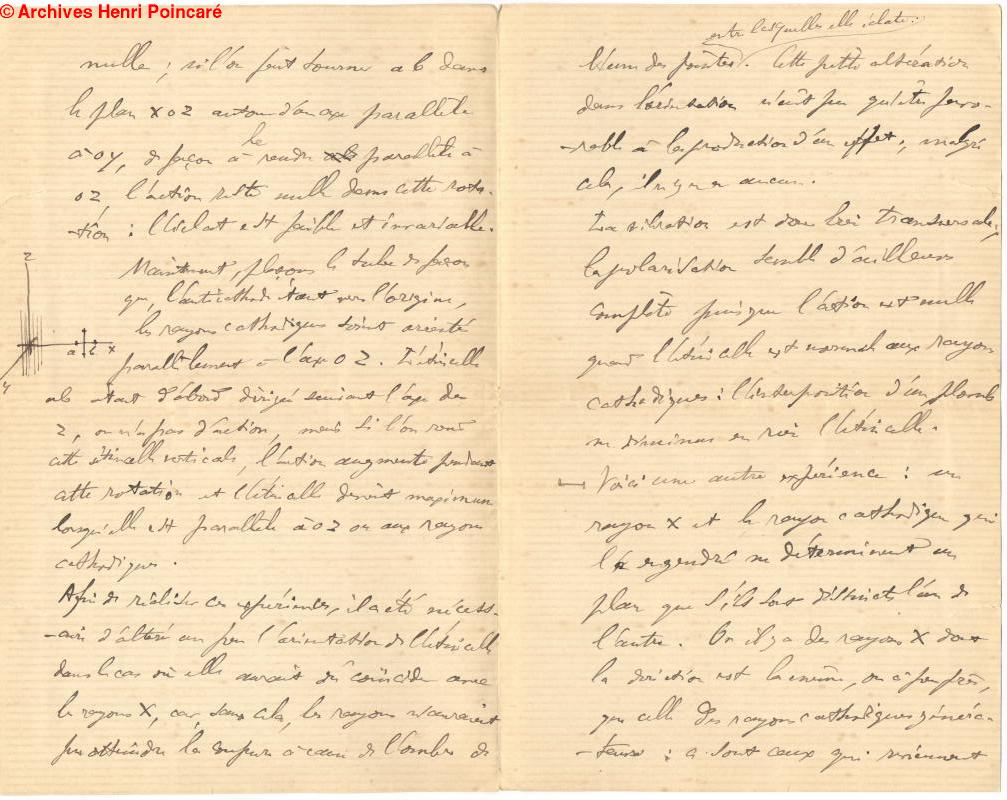 © Archives Henri Poincaré
nulle ; si l'on fait tourner ab dans
le plan xoz autour d'un axe parallèle
à oy, de façon à le rendre parallèle à
oz, l'action reste nulle dans cette rota-
-tion : l'éclat est faible et invariable.
Maintenant, plaçons le tube de façon
que, l'anticathode étant vers l'origine,
les rayons cathodiques soient orientés
parallèlement à l'axe OZ. L'étincelle
ab étant d'abord dirigée suivant l'axe des
z, on n'a pas d'action, mais si l'on rend
cette étincelle verticale, l'action augmente pendant
cette rotation et l'étincelle devient maximum
lorsqu'elle est parallèle à oz ou aux rayons
cathodiques.
Afin de réaliser ces expériences, il a été nécess-
-aire d'altérer un peu l'orientation de l'étincelle
dans le cas où elle aurait dû coïncider avec
les rayons X, car, sans cela, les rayons n'auraient
pu atteindre la coupure à cause de l'ombre de
z
a b x
y
l'une des pointes entre lesquelles elle éclate. Cette petite altération
dans l'orientation n'eût pu qu'être favo-
-rable à la production d'un effet ; malgré
cela, il n'y en a aucun.
La vibration est donc bien transversale,
la polarisation semble d'ailleurs
complète puisque l'action est nulle
quand l'étincelle est normale aux rayons
cathodiques : l'interposition d'un plomb
ne diminue en rien l'étincelle.
Voici une autre expérience : un
rayon X et le rayon cathodique qui
l'a engendré ne déterminent un
plan que s'ils sont distincts l'un de
l'autre. Or il y a des rayons X dont
la direction est la même, ou à peu près,
que celle des rayons cathodiques généra-
-teurs : ce sont ceux qui viennent